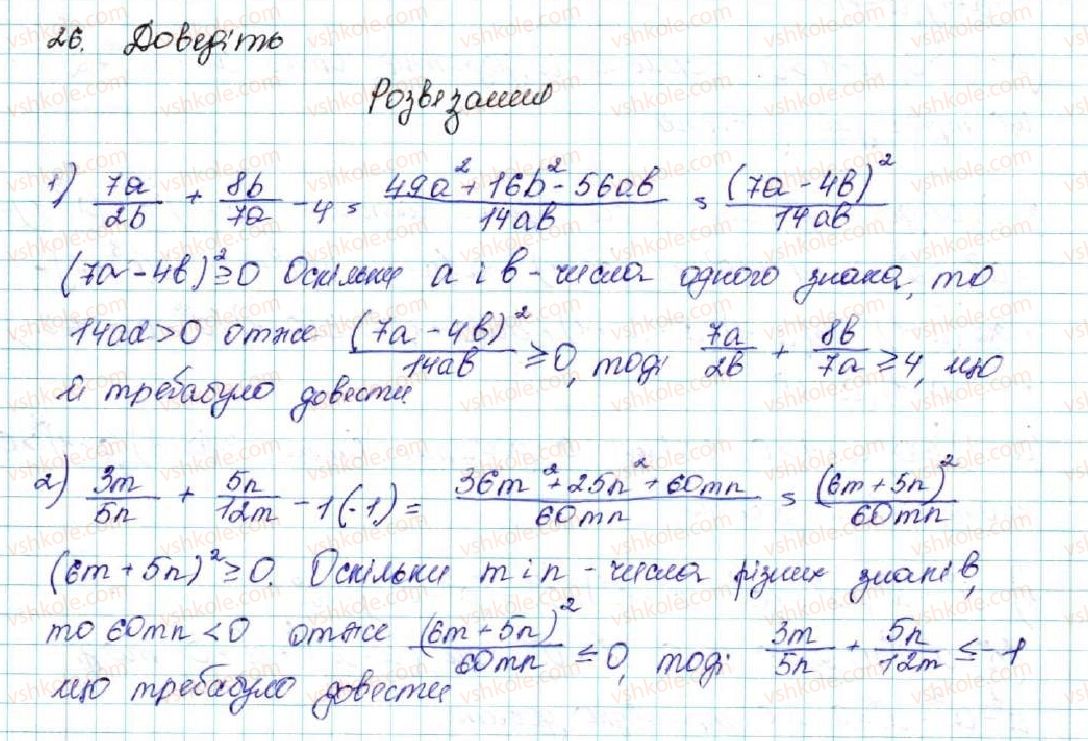 26. Доведіть
Розвязання
1) 7a/2b + 8b/7a - 4 = 49a² + 16b² - 56ab/14ab = (7a - 4b)²/14ab
(7a - 4b)² ≥ 0 Оскільки a і b - числа одного знака, то
14ad > 0 отже (7a - 4b)²/14ab ≥ 0, тоді 7a/2b + 8b/7a ≥ 4, що
й требабуло довести
2) 3m/5n + 5n/12m - 1(-1) = 36m² + 25n² + 60mn/60mn = (6m + 5n)²/60mn
(6m + 5n)² ≥ 0. Оскільки m і n - числа різних знаків,
то 60mn < 0 отже (6m + 5n)²/60mn ≤ 0, тоді 3m/5n + 5n/12m ≤ -1
що требабуло довести